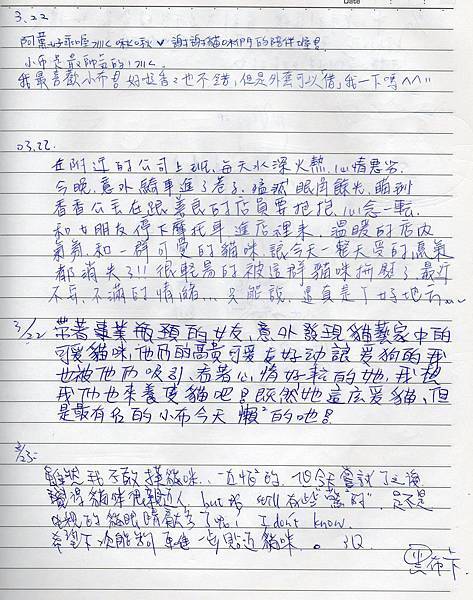 3.22
阿葉好乖喔!!! 啾啾 ♥ 謝謝貓咪們的陪伴
小布是最帥氣的!
我最喜歡小布 好啦香香也不錯,但是外帶可以借我一下嗎^^"
03.22
在附近的公司上班,每天水深火熱,心情惡劣
今晚,意外騎車進了巷子,猛然眼角餘光,瞄到
香香公主在跟善良的店員要抱抱,心念一轉,
和女朋友停下摩托車進店裡來,溫暖的店內
氣氛,和一群可愛的貓咪讓今天一整天受的怨氣
都消失了!! 很輕易的被這群貓咪撫慰了最近
不安、不滿的情緒...只能說,還真是個好地方...
3/22 帶著事業瓶頸的女友,意外發現貓藝家中的
可愛貓咪,他們的高貴可愛友好動讓愛狗的我
也被他們吸引,看著心情好轉的她,我想
我們也來養隻貓吧!既然她這麼愛貓,但
是最有名的小布今天懶懶的吔!
3/23.
雖然我不敢摸貓咪,一直怕怕的,但今天嘗試了之後
覺得貓咪很動人, but 我 still 有些"驚的",是不是
我的貓眼睛 了呢! I don't know.
希望下次能夠再進一步貼近貓咪。 3Q
雲布下